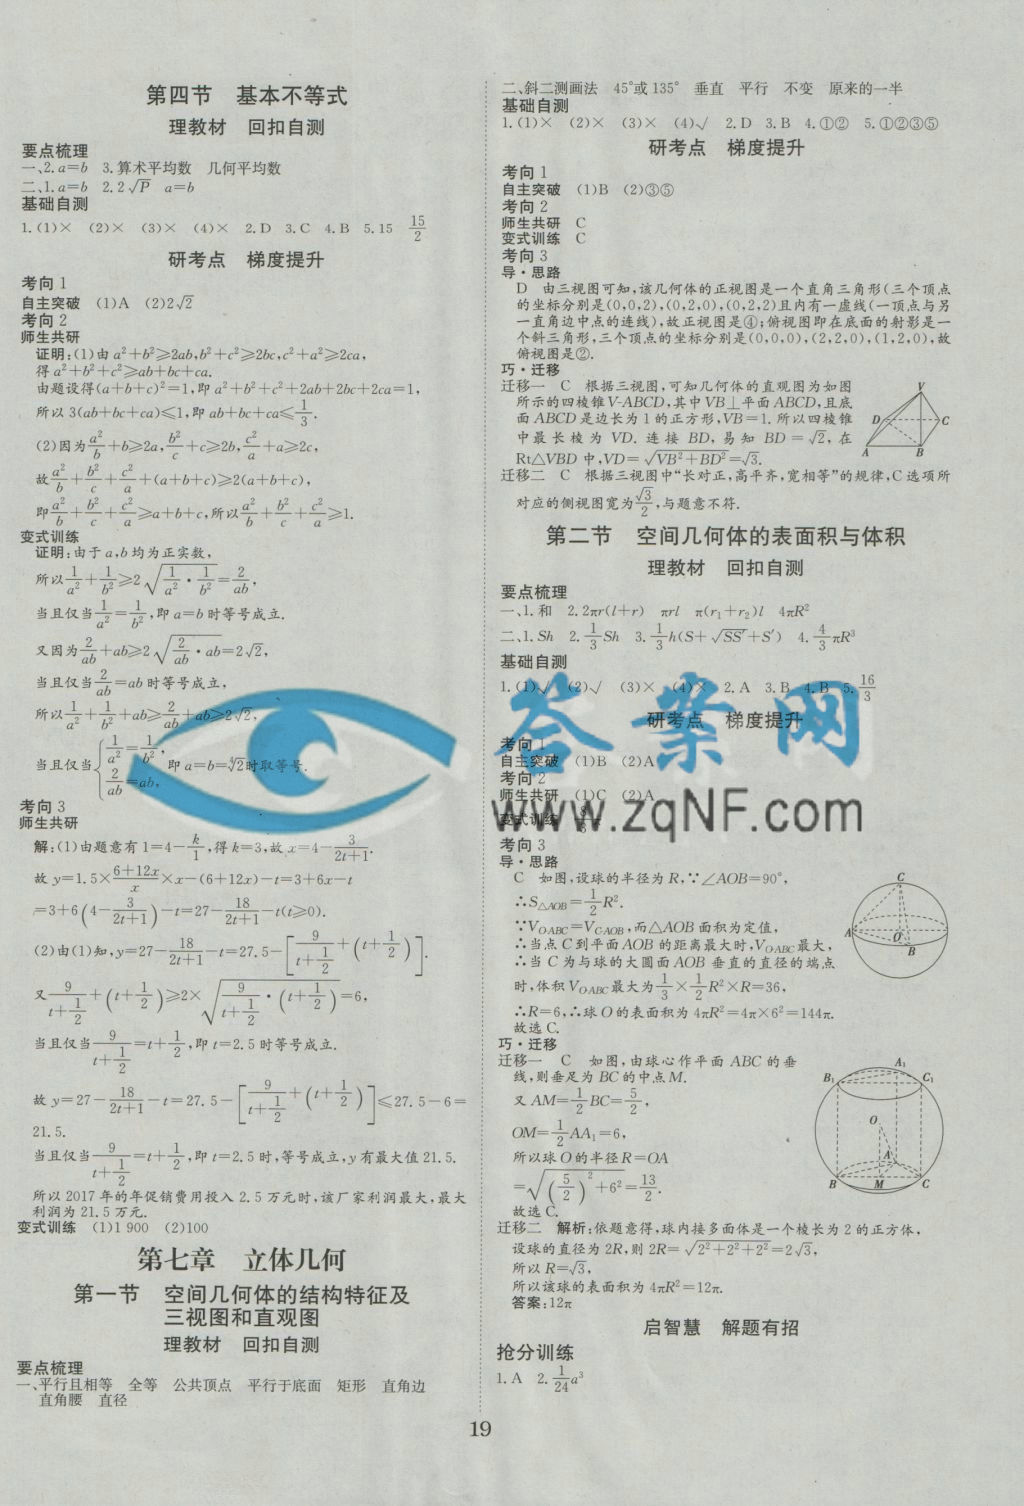 第四节　基本不等式
理教材　回扣自测
要点梳理
一、2.a=b　3.算术平均数　几何平均数
二、1.a=b　2.2√P　a=b
基础自测
1.(1)×　(2)×　(3)×　(4)×　2.D　3.C　4.B　5.15　15/2
研考点　梯度提升
考向1
自主突破　(1)A　(2)2√2
考向2
师生共研
证明:(1)由a²+b²≥2ab,b²+c²≥2bc,c²+a²≥2ca,
得a²+b²+c²≥ab+bc+ca.
由题设得(a+b+c)²=1,即a²+b²+c²+2ab+2bc+2ca=1,
所以3(ab+bc+ca)≤1,即ab+bc+ca≤1/3.
(2)因为a²/b+b≥2a,b²/c+c≥2b,c²/a+a≥2c,
故a²/b+b²/c+c²/a+(a+b+c)≥2(a+b+c),
即a²/b+b²/c+c²/a≥a+b+c,所以a²/b+b²/c+c²/a≥1.
变式训练
证明:由于a,b均为正实数,
所以1/a²+1/b²≥2√(1/a²·1/b²)=2/ab,
当且仅当1/a²=1/b²,即a=b时等号成立.
又因为2/ab+ab≥2√(2/ab·ab)=2√2,
当且仅当2/ab=ab时等号成立,
所以1/a²+1/b²+ab≥2/ab+ab≥2√2,
当且仅当{1/a²=1/b², 2/ab=ab, 即a=b=⁴√2时取等号.
考向3
师生共研
解:(1)由题意有1=4-k/1,得k=3,故x=4-3/(2t+1).
故y=1.5×(6+12x)/x×x-(6+12x)-t=3+6x-t
=3+6(4-3/(2t+1))-t=27-18/(2t+1)-t(t≥0).
(2)由(1)知,y=27-18/(2t+1)-t=27.5-[9/(t+1/2)+(t+1/2)].
又9/(t+1/2)+(t+1/2)≥2×√(9/(t+1/2)·(t+1/2))=6,
当且仅当9/(t+1/2)=t+1/2,即t=2.5时等号成立.
故y=27-18/(2t+1)-t=27.5-[9/(t+1/2)+(t+1/2)]≤27.5-6=
21.5.
当且仅当9/(t+1/2)=t+1/2,即t=2.5时,等号成立,y有最大值21.5.
所以2017年的年促销费用投入2.5万元时,该厂家利润最大,最大
利润为21.5万元.
变式训练　(1)1 900　(2)100
第七章　立体几何
第一节　空间几何体的结构特征及
三视图和直观图
理教材　回扣自测
要点梳理
一、平行且相等　全等　公共顶点　平行于底面　矩形　直角边
直角腰　直径
二、斜二测画法　45°或135°　垂直　平行　不变　原来的一半
基础自测
1.(1)×　(2)×　(3)×　(4)√　2.D　3.B　4.①②　5.①②③⑤
研考点　梯度提升
考向1
自主突破　(1)B　(2)③⑤
考向2
师生共研　C
变式训练　C
考向3
导·思路
D　由三视图可知,该几何体的正视图是一个直角三角形(三个顶点
的坐标分别是(0,0,2),(0,2,0),(0,2,2)且内有一虚线(一顶点与另
一直角边中点的连线),故正视图是④;俯视图即在底面的射影是一
个斜三角形,三个顶点的坐标分别是(0,0,0),(2,2,0),(1,2,0),故
俯视图是②.
巧·迁移
迁移一　C　根据三视图,可知几何体的直观图为如图
所示的四棱锥V-ABCD,其中VB⊥平面ABCD,且底
面ABCD是边长为1的正方形,VB=1.所以四棱锥
中最长棱为VD.连接BD,易知BD=√2,在
Rt△VBD中,VD=√(VB²+BD²)=√3.
V
D
C
A
B
迁移二　C　根据三视图中“长对正,高平齐,宽相等”的规律,C选项所
对应的侧视图宽为√3/2,与题意不符.
第二节　空间几何体的表面积与体积
理教材　回扣自测
要点梳理
一、1.和　2.2πr(l+r)　πrl　π(r₁+r₂)l　4πR²
二、1.Sh　2.1/3Sh　3.1/3h(S+√SS′+S′)　4.4/3πR³
基础自测
1.(1)√　(2)√　(3)×　(4)×　2.A　3.B　4.B　5.16/3
研考点　梯度提升
考向1
自主突破　(1)B　(2)A
考向2
师生共研　(1)C　(2)A
变式训练
考向3
导·思路
C　如图,设球的半径为R,∵∠AOB=90°,
∴S△AOB=1/2R².
∵V_O-ABC=V_C-AOB,而△AOB面积为定值,
∴当点C到平面AOB的距离最大时,V_O-ABC最大,
∴当C为与球的大圆面AOB垂直的直径的端点
时,体积V_O-ABC最大为1/3×1/2R²×R=36,
∴R=6,∴球O的表面积为4πR²=4π×6²=144π.
故选C.
C
A
O
B
巧·迁移
迁移一　C　如图,由球心作平面ABC的垂
线,则垂足为BC的中点M.
又AM=1/2BC=5/2,
OM=1/2AA₁=6,
所以球O的半径R=OA
=√((5/2)²+6²)=13/2.
故选C.
A₁
B₁
C₁
O
A
B
M
C
迁移二　解析:依题意得,球内接多面体是一个棱长为2的正方体,
设球的直径为2R,则2R=√(2²+2²+2²)=2√3,
所以R=√3,
所以该球的表面积为4πR²=12π.
答案:12π
启智慧　解题有招
抢分训练
1.A　2.1/24a³
19
答案网
www.zqNF.com